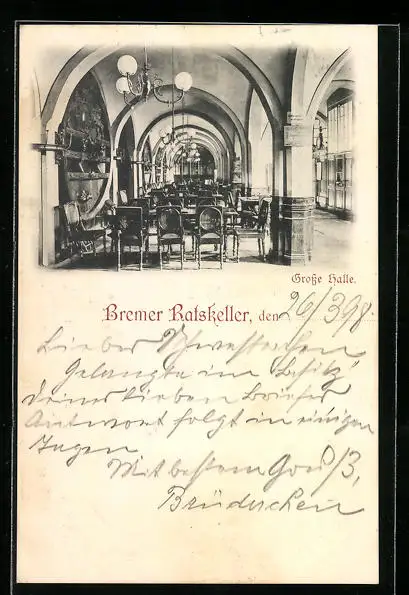 Große Halle.
Bremer Ratskeller, den 26/3 98.
Liebes Schwesterchen
Gelangte im Besitz
Deines lieben Briefes
Antwort folgt in einigen
Tagen
Mit bestem Gruß,
Brüderchen